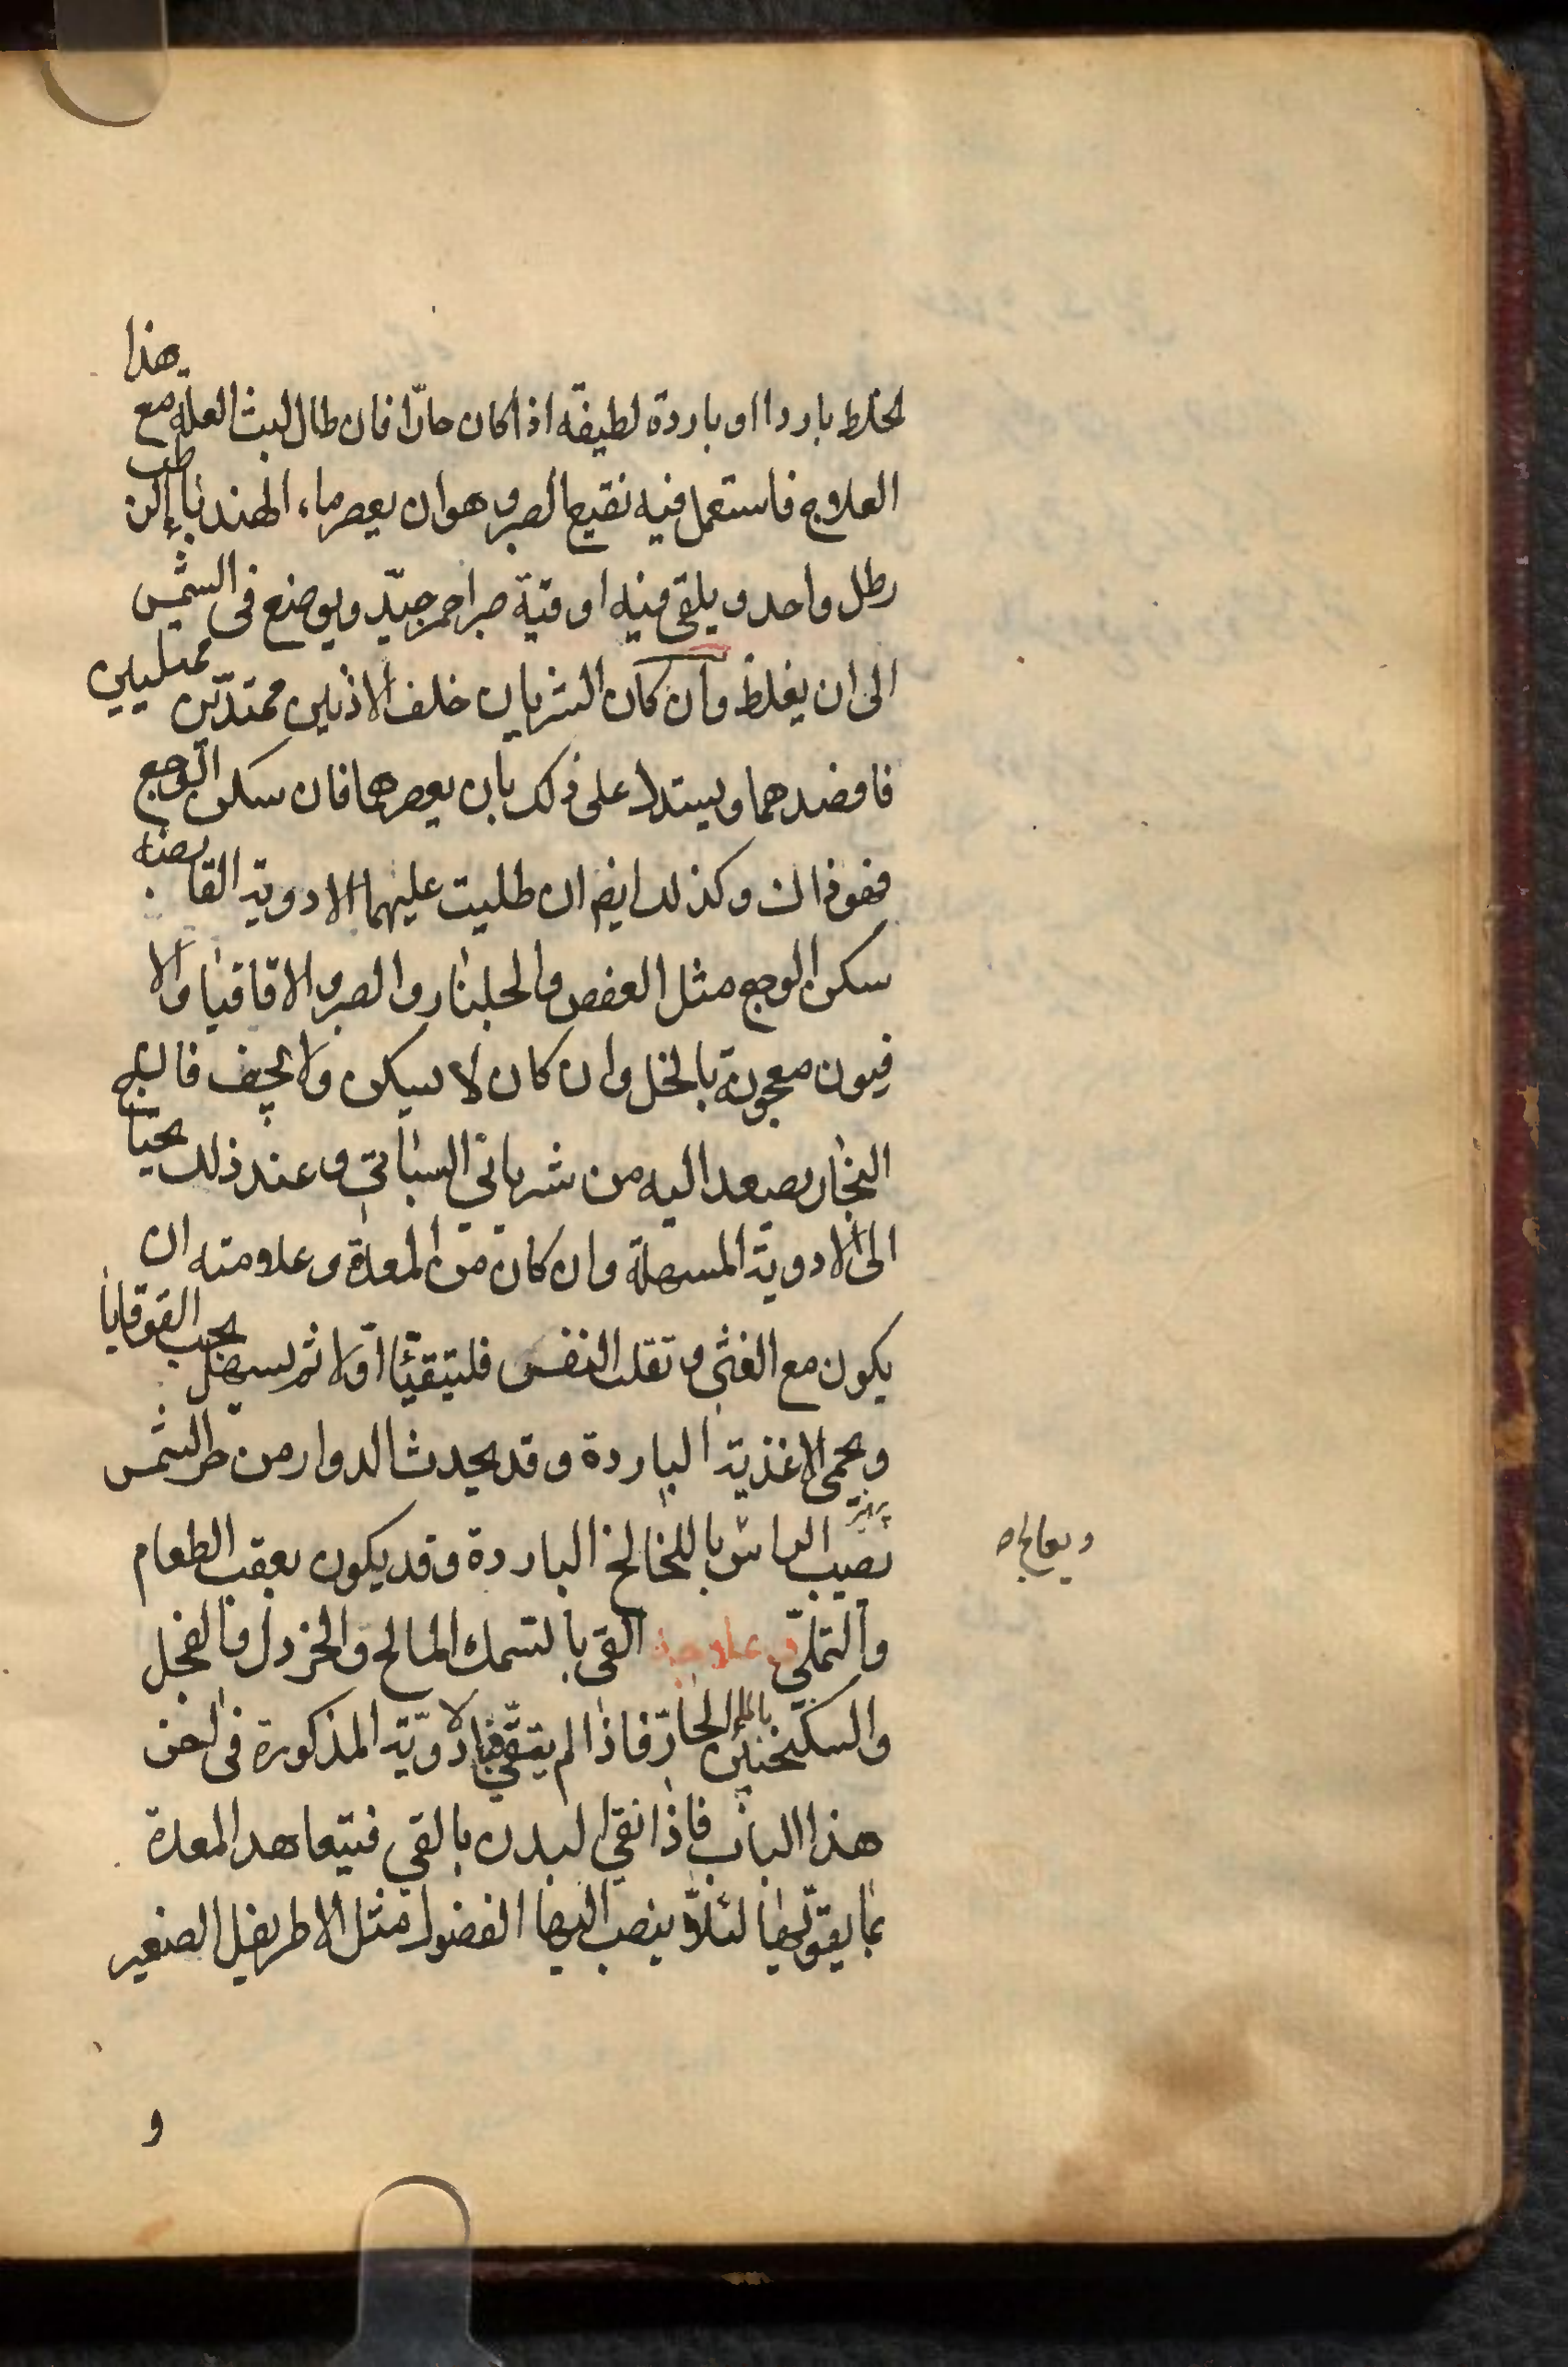 لخلط باردا او باردة لطيفة اذا كان حارّا فان طال لبث العلة مع هذا
العلاج فاستعمل فيه نقيع الصبر وهو ان يعصر ماء الهندبا الرطب
رطل واحد و يلقى فيه اوقية صبر احمر جيّد ويوضع فى الشمس
الى ان يغلظ وان كان الشريان خلف الاذنين ممتدّين ممتليين
فافصدهما ويستدل على ذلك بان يعصرهما فان سكن الوجع
فهو ذاك وكذلك ايض ان طليت عليهما الادوية القابضة
سكن الوجع مثل العفص والجلنار والصبر والاقاقيا والا
فيون معجونة بالخل وان كان لا يسكن ولا يجف فالبخ
البخار يصعد اليه من شرياني السباتي وعند ذلك يحتاج
الى الادوية المسهلة وان كان من المعدة وعلامته ان
يكون مع الغثى وتقلب النفس فليتقيّأ اوّلا ثم يسهل بحب القوقايا
ويحمى الاغذية الباردة وقد يحدث الدوار من حر الشمس
نصيب الراس باللخالخ الباردة وقد يكون بعقب الطعام
ويعالج ه
والتملّى وعلاجه القى بالسمك المالح والخردل والفجل
والسكنجبين بالماء الحارّ فاذا لم يتقي فبالادوية المذكورة فى اخر
هذا الباب فاذا نقي البدن بالقي فيتعاهد المعدة
بما يقوّيها لئلا ينصب اليها الفضول مثل الاطريفل الصغير
و